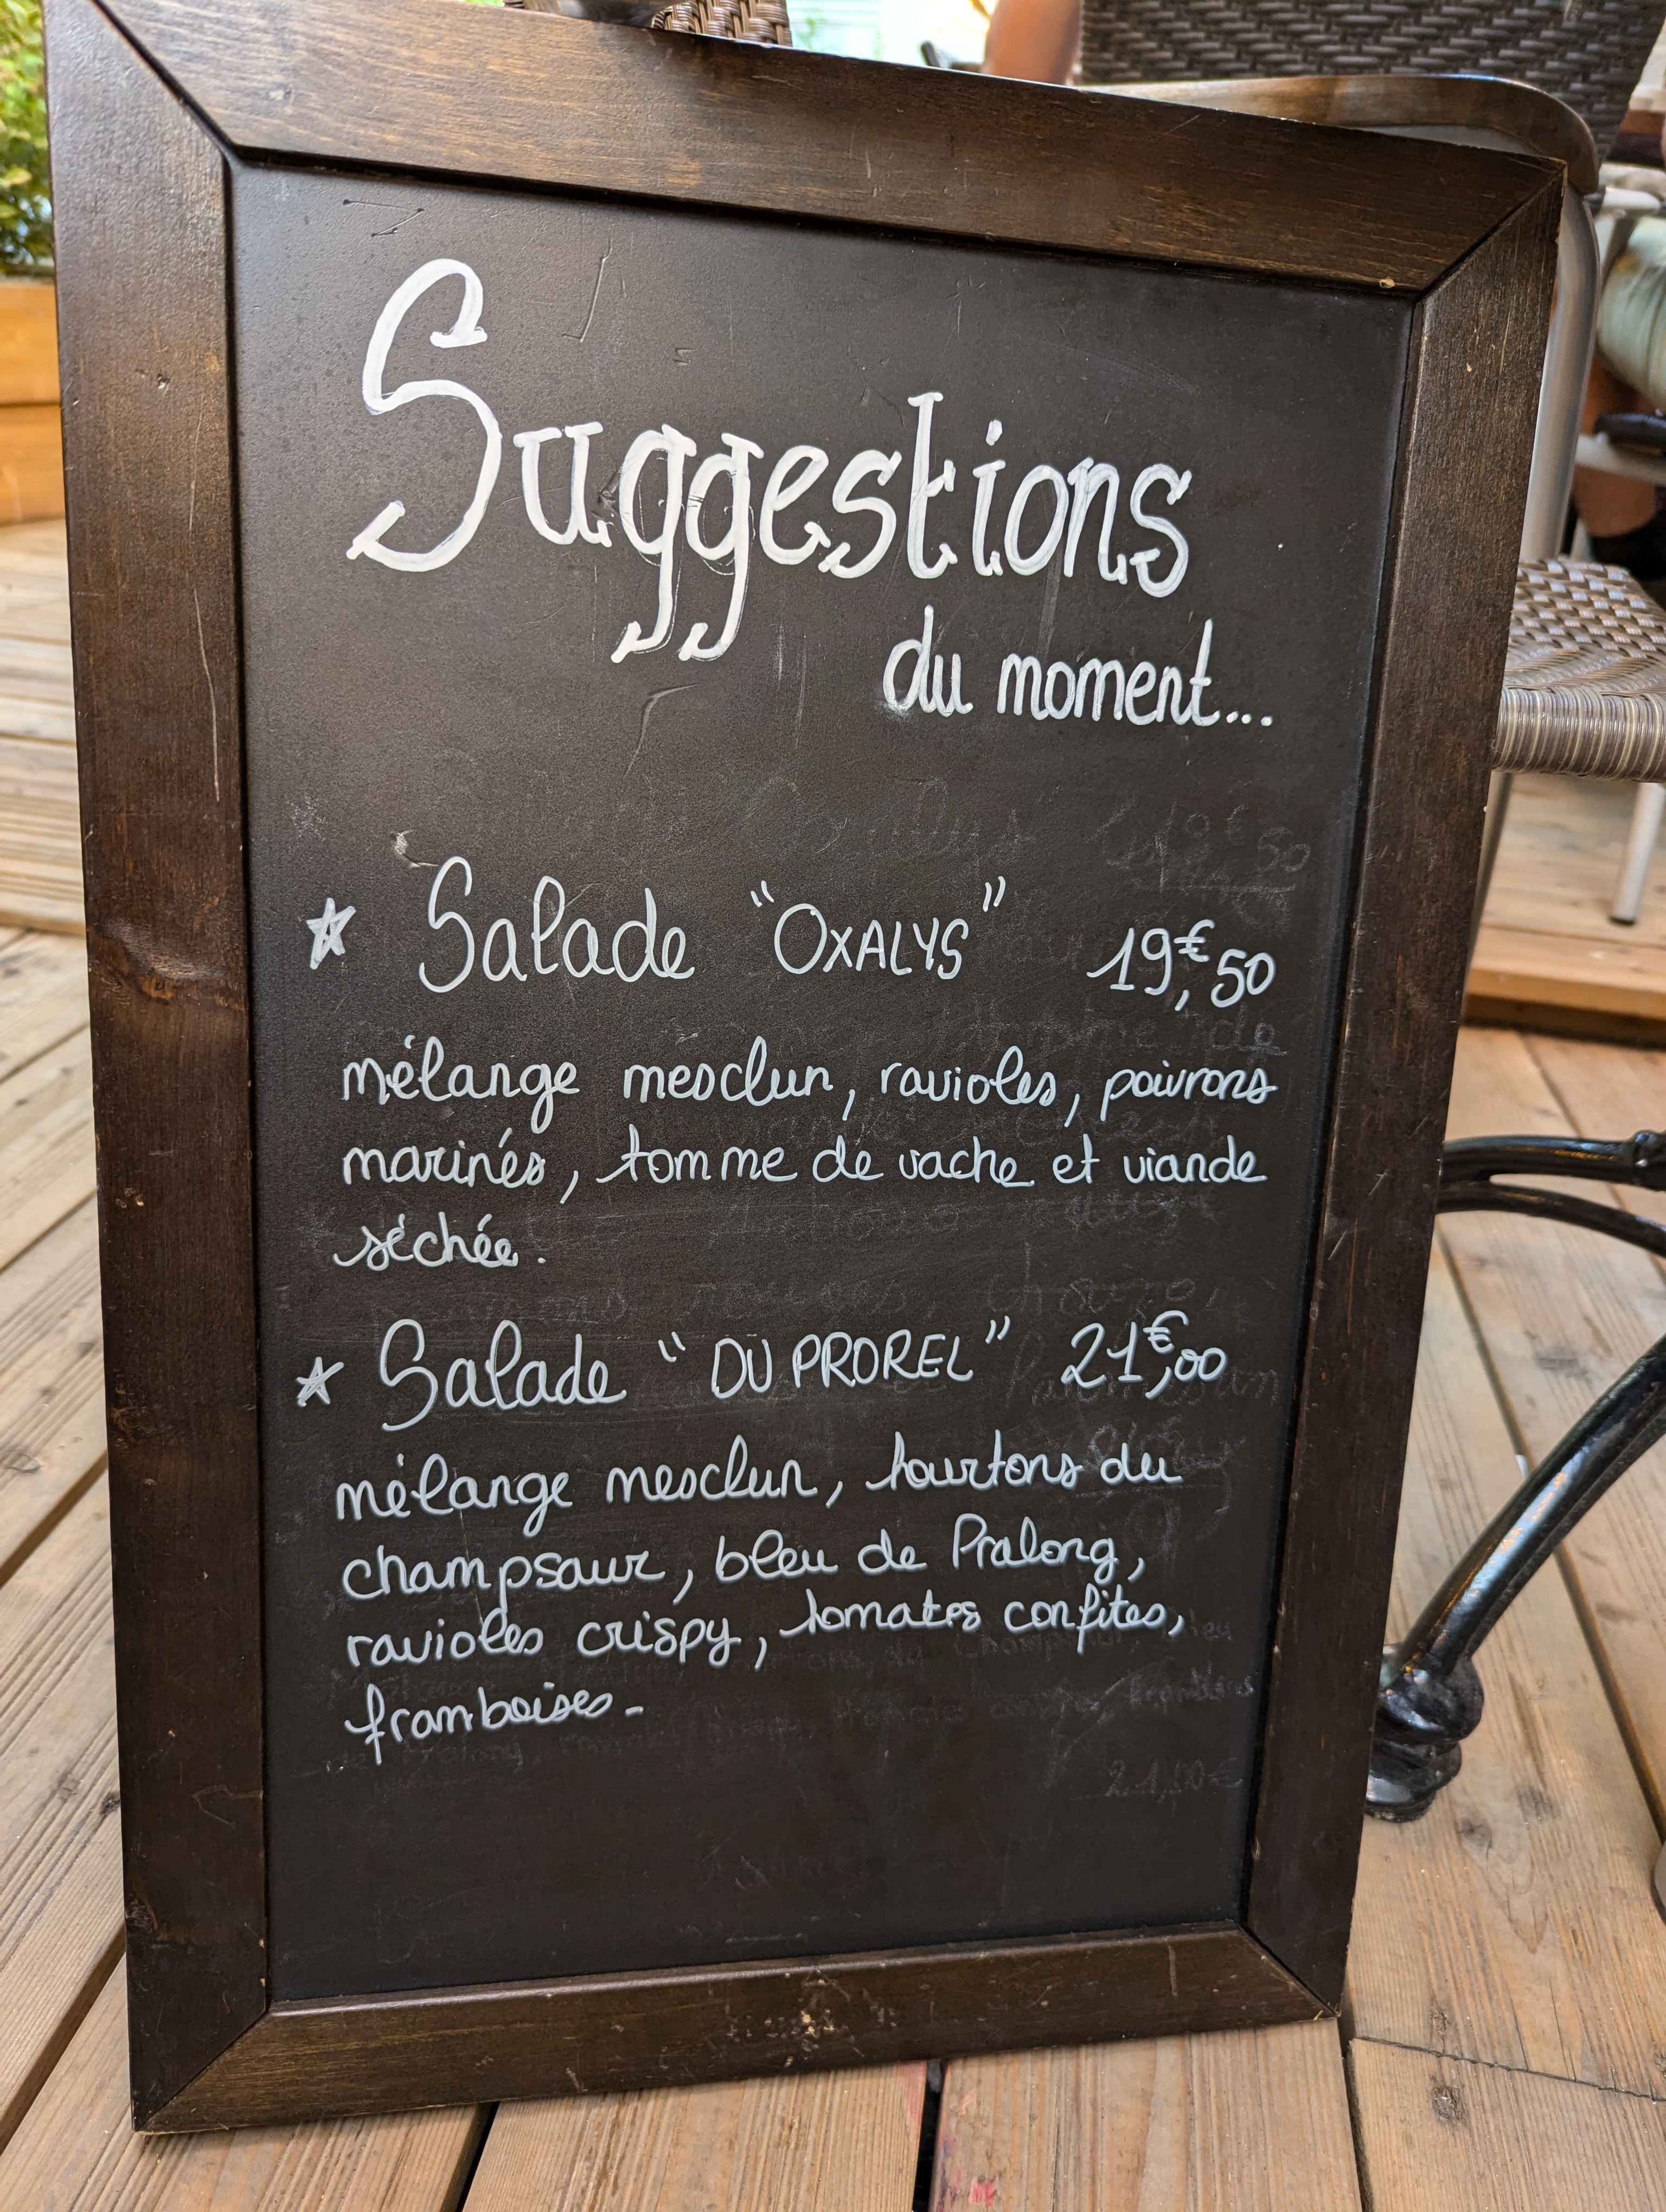 Suggestions
du moment...
Salade "OXALYS" 19€,50
mélange mesclun, ravioles, poivrons
marinés, tomme de vache et viande
séchée.
Salade "DU PROREL" 21€,00
mélange mesclun, tourtons du
champsaur, bleu de Pralong,
ravioles crispy, tomates confites,
framboises-
21,00€